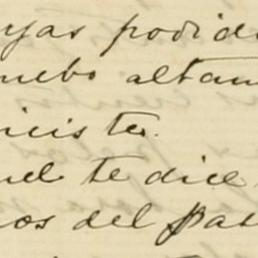 yas podid
uebo altam
icis te.
uel te dice
os del pat